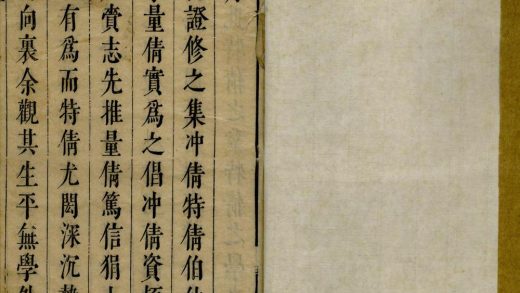 證修之集冲倩特倩伯
量倩實為之倡冲倩資
賫志先推量倩篤信狷
有為而特倩尤閎深沉
向裏余觀其生平無學